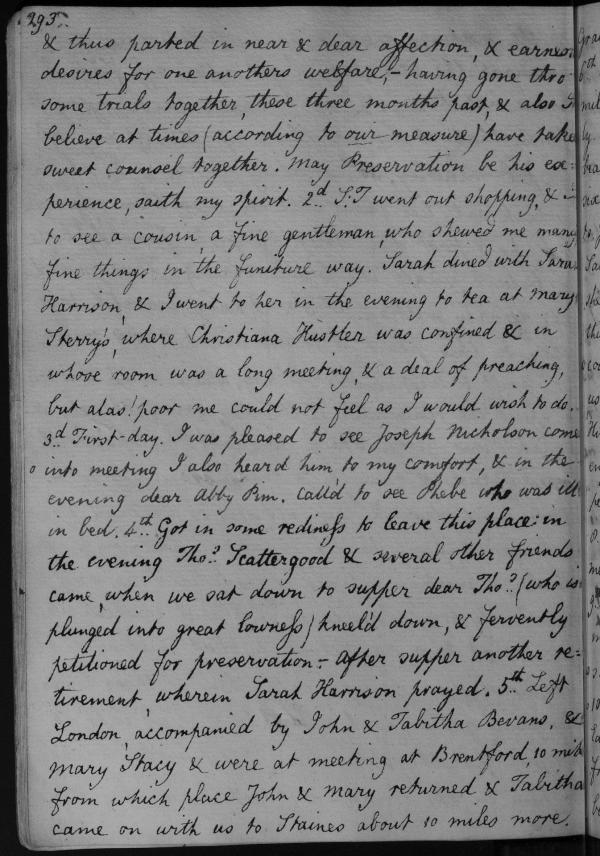 293.
& thus parted in near & dear affection, & earnest
desires for one anothers welfare,- having gone thro
some trials together, these three months past, & also I
believe at times (according to our measure) have take
sweet counsel together. May Preservation be his ex=
perience, saith my spirit. 2.d S:T went out shopping, &
to see a cousin, a fine gentleman, who shewed me many
fine things in the funiture way. Sarah dined with Sarah
Harrison, & I went to her in the evening to tea at Mary
Sterry's, where Christiana Hustler was confined & in
whose room was a long meeting, & a deal of preaching,
but alas! poor me could not feel as I would wish to do.
3.d First-day. I was pleased to see Joseph Nicholson come
into meeting I also heard him to my comfort, & in the
evening dear Abby Pim. call'd to see Phebe who was ill
in bed. 4.th Got in some rediness to leave this place: in
the evening Tho.s Scattergood & several other friends
came, when we sat down to supper dear Tho.s (who is
plunged into great lowness) kneel'd down, & fervently
petitioned for preservation.- After supper another re=
tirement, wherein Sarah Harrison prayed. 5.th Left
London, accompanied by John & Tabitha Bevans, &
Mary Stacy & were at meeting at Brentford, 10 mile
from which place John & Mary returned & Tabitha
came on with us to Staines about 10 miles more.